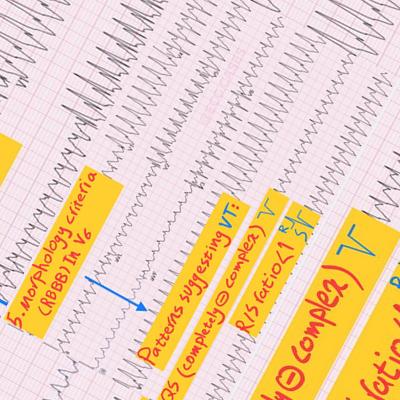 5. Morphology criteria
(RBBB) In V6
Patterns suggesting VT:
QS (completely ⊖ complex) V
R/S ratio < 1 R S V
⊖ complex) V